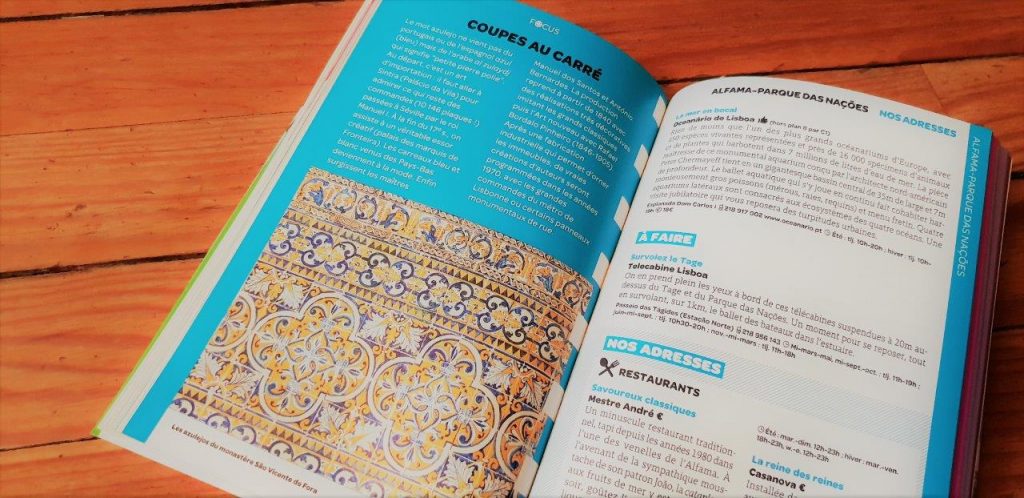 FOCUS
COUPES AU CARRÉ
Le mot azulejo ne vient pas du
portugais ou de l'espagnol azul
(bleu) mais de l'arabe al zulaydj
qui signifie "petite pierre polie".
Au départ, c'est un art
d'importation : il faut aller à
Sintra (Palácio da Vila) pour
admirer ce qui reste des
commandes (10 146 plaques !)
passées à Séville par le roi
Manuel I. À la fin du 17e s., on
assiste à un véritable essor
créatif (palais des marquis de
Fronteira). Les carreaux bleu et
blanc venus des Pays-Bas
deviennent à la mode. Enfin
surgissent les maîtres
Manuel dos Santos et António
Bernardes. La production
reprend à partir de 1840, avec
des réalisations très décoratives
imitant les grands classiques
puis l'Art nouveau de Rafael
Bordalo Pinheiro (1846-1905).
Après une fabrication
industrielle qui permet d'orner
les immeubles, de vraies
créations d'auteurs seront
programmées dans les années
1970, avec les grandes
commandes du métro de
Lisbonne ou certains panneaux
monumentaux de rue.
Les azulejos du monastère São Vicente de Fora
ALFAMA–PARQUE DAS NAÇÕES
NOS ADRESSES
La mer en bocal
Oceanário de Lisboa (hors plan 6 par C1)
Rien de moins que l'un des plus grands océanariums d'Europe, avec
450 espèces vivantes représentées et près de 16 000 spécimens d'animaux
et de plantes qui barbotent dans 7 millions de litres d'eau de mer. La pièce
maîtresse de ce monumental aquarium conçu par l'architecte nord-américain
Peter Chermayeff tient en un gigantesque bassin central de 35m de large et 7m
de profondeur. Le ballet aquatique qui s'y joue en continu fait cohabiter har-
monieusement gros poissons (mérous, raies, requins) et menu fretin. Quatre
aquariums latéraux sont consacrés aux écosystèmes des quatre océans. Une
visite jubilatoire qui vous reposera des turpitudes urbaines.
Esplanada Dom Carlos I 218 917 002 www.oceanario.pt Été : tlj. 10h-20h ; hiver : tlj. 10h-
19h 18€
À FAIRE
Survolez le Tage
Telecabine Lisboa
On en prend plein les yeux à bord de ces télécabines suspendues à 20m au-
dessus du Tage et du Parque das Nações. Un moment pour se reposer, tout
en survolant, sur 1km, le ballet des bateaux dans l'estuaire.
Passeio das Tágides (Estação Norte) 218 956 143 Mi-mars-mai, mi-sept.-oct. : tlj. 11h-19h ;
juin-mi-sept. : tlj. 10h30-20h ; nov.-mi-mars : tlj. 11h-18h
NOS ADRESSES
RESTAURANTS
Savoureux classiques
Mestre André €
Un minuscule restaurant tradition-
nel, tapi depuis les années 1980 dans
l'une des venelles de l'Alfama. À
l'avenant de la sympathique mous-
tache de son patron João, la
aux fruits de mer y est
soir, goûtez
Été : mar.-dim. 12h-23h ; hiver : mar.-ven.
18h-23h, w.-e. 12h-23h
La reine des reines
Casanova €
Installée
ALFAMA-PARQUE DAS NAÇÕES